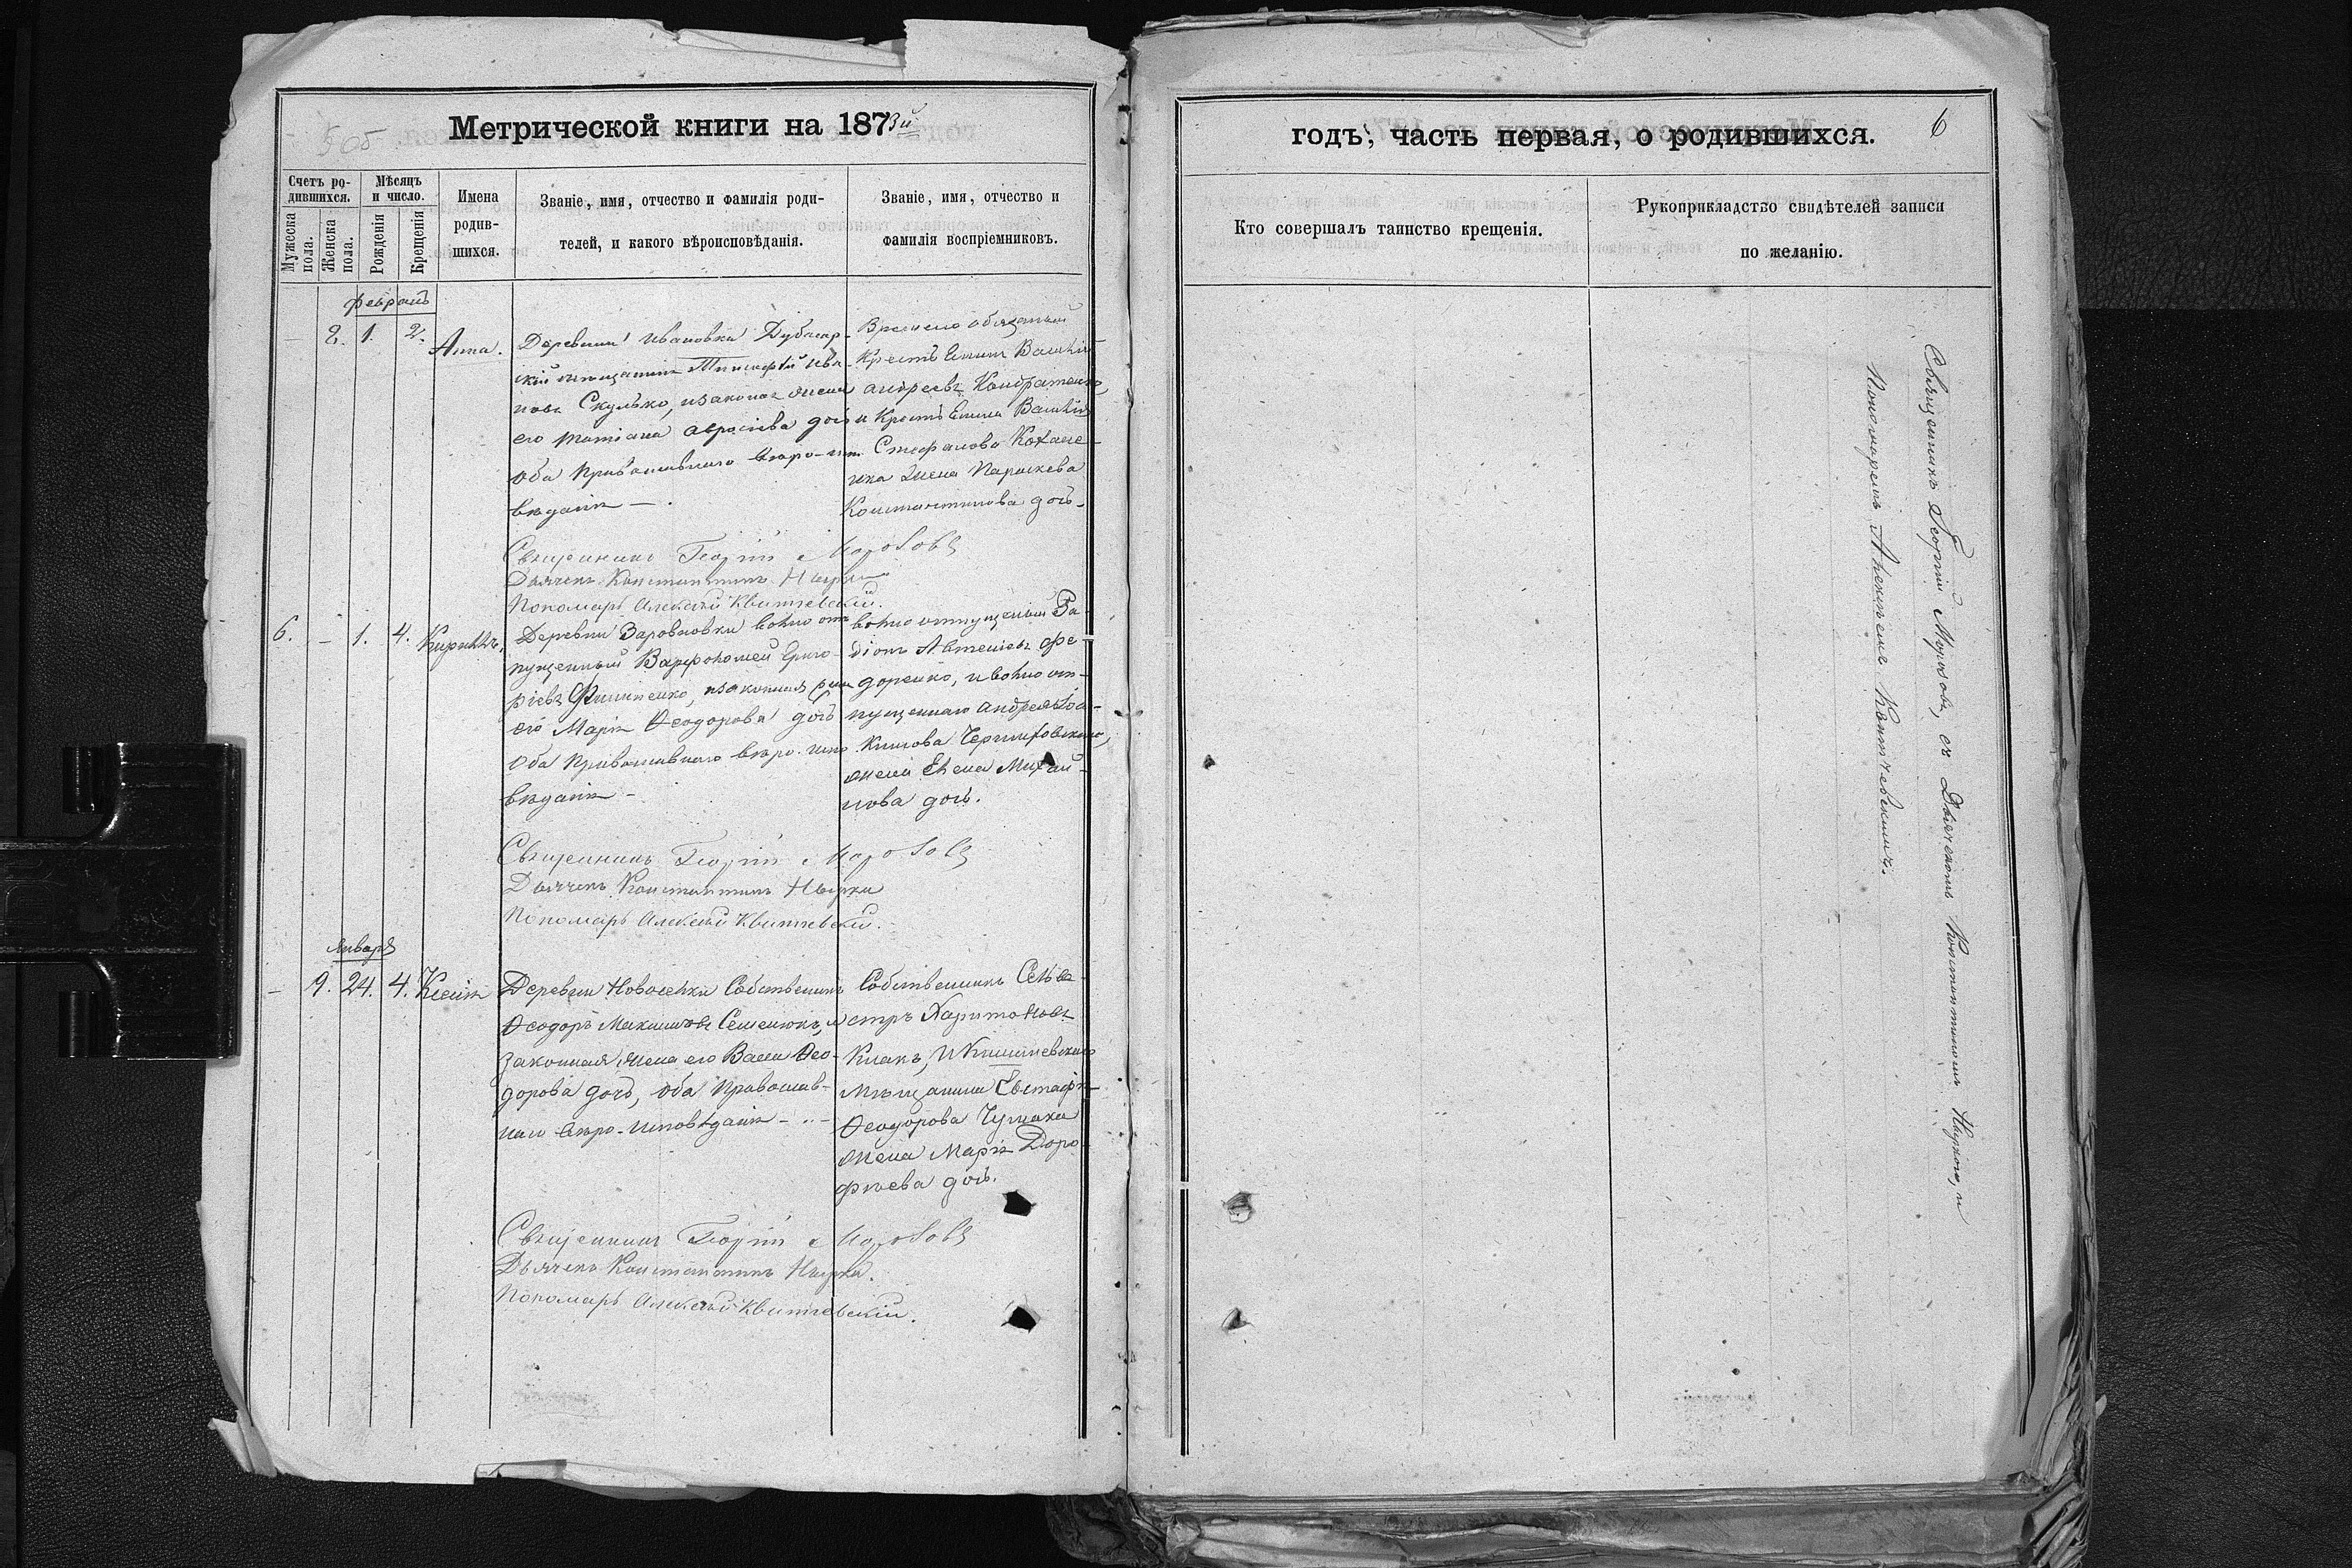 Метрической книги на 1873й
Счетъ ро-
дившихся.
Мѣсяцъ
и число.
Мужеска
пола.
Женска
пола.
Рожденія
Крещенія
Имена
родив-
шихся.
Званіе, имя, отчество и фамилія роди-
телей, и какого вѣроисповѣданія.
Званіе, имя, отчество и
фамилія воспріемниковъ.
— 8. 1. 2. Анна.
Деревни Ивановки Дубоссар-
скій мѣщанинъ Ива-
новъ Скулько, и законная жена
его Татіана дочь
оба Православнаго вѣро-испо-
вѣданія —.
Временно обязанный
Андреевъ Кондратенко,
и
Стефанова
жена Параскева
Константинова дочь.
Священникъ Георгій Морозовъ
Дьячекъ Константинъ
Пономарь Алексѣй Квитчевскій.
6. — 1. 4. Кириллъ.
Деревни вольно от-
пущенный Варфоломей Григо-
ріевъ Филипенко, и законная жена
его Марія Ѳеодорова дочь
оба Православнаго вѣро-испо-
вѣданія —
вольно отпущенный Ра-
діонъ Ѳе-
доренко, и вольно от-
пущеннаго Андрея Іоа-
кимова Черниховскаго,
жена Елена Михай-
лова дочь.
Священникъ Георгій Морозовъ
Дьячекъ Константинъ
Пономарь Алексѣй Квитчевскій.
Января
— 9. 24. 4. Ксенія
Деревни Новоселки Собственникъ
Ѳеодоръ Максимовъ Семенюкъ, и
законная жена его Ѳео-
дорова дочь, оба Православ-
наго вѣро-исповѣданія —
Собственникъ Сельве-
стръ Харитоновъ
и Кишиневскаго
Мѣщанина Евстафія
Ѳеодорова Чумака
жена Марія Доро-
фѣева дочь.
Священникъ Георгій Морозовъ
Дьячекъ Константинъ
Пономарь Алексѣй Квитчевскій.
годъ; часть первая, о родившихся.
6
Кто совершалъ таинство крещенія.
Рукоприкладство свидѣтелей записи
по желанію.
Священникъ Георгій Морозовъ, съ Дьячкомъ Константиномъ и
Пономаремъ Алексѣемъ Квитчевскимъ.